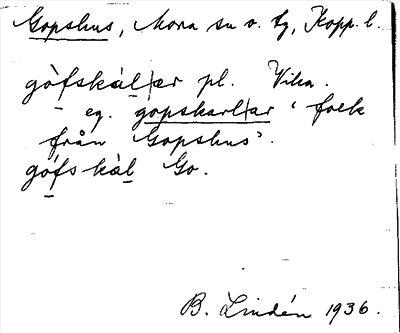 Gopshus, Mora sn o. tg, Kopp. l.
gòfskál|ær pl. Vika.
eg. gopskarl|ar 'folk
från Gopshus'.
gófskàl Go.
B. Lindén 1936.